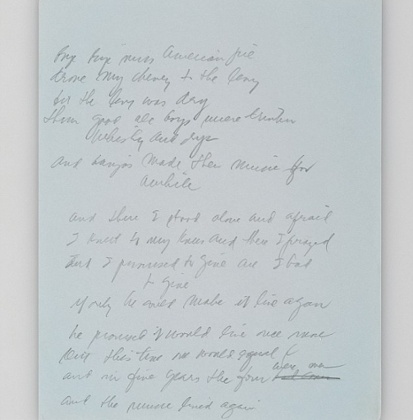 Bye Bye miss American pie
drove my chevey to the levy
but the levy was dry
them good ole boys were drinkin
Whisky and rye
and banjos made their music for
awhile
and there I stood alone and afraid
I knelt to my knees and there I prayed
that I promised to give all I had
to give
if only he would make it live again
he promised it would live once more
but this time one would equal
and in five years the four were men
and the music lived again